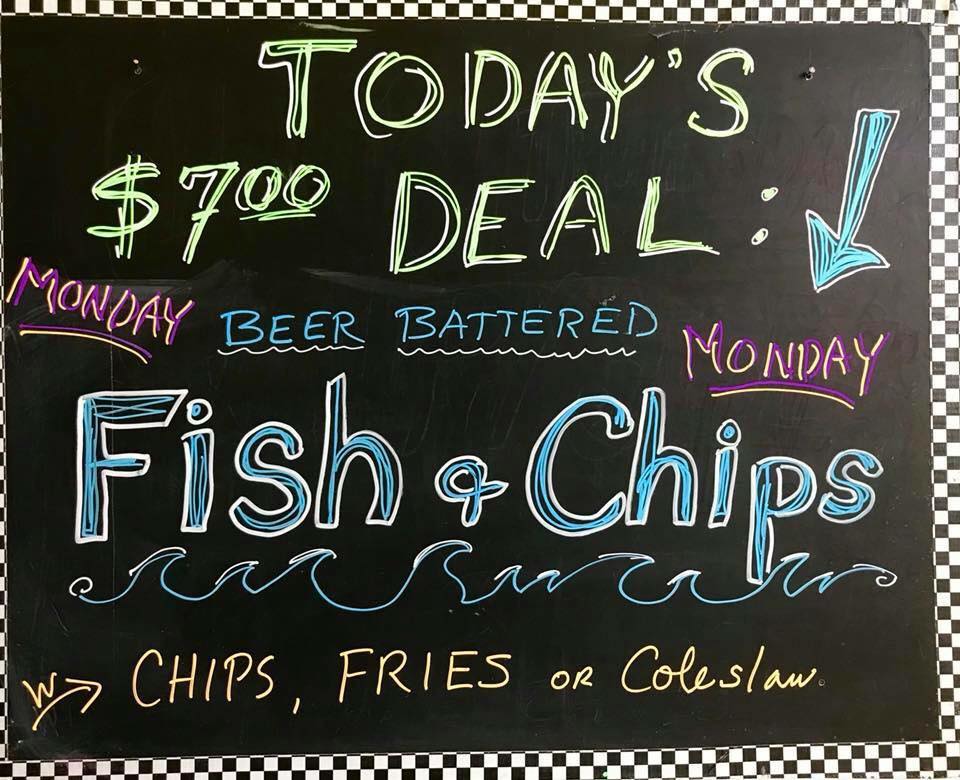 TODAY'S
$7.00 DEAL:
MONDAY
BEER BATTERED
MONDAY
Fish & Chips
W→ CHIPS, FRIES OR Coleslaw.